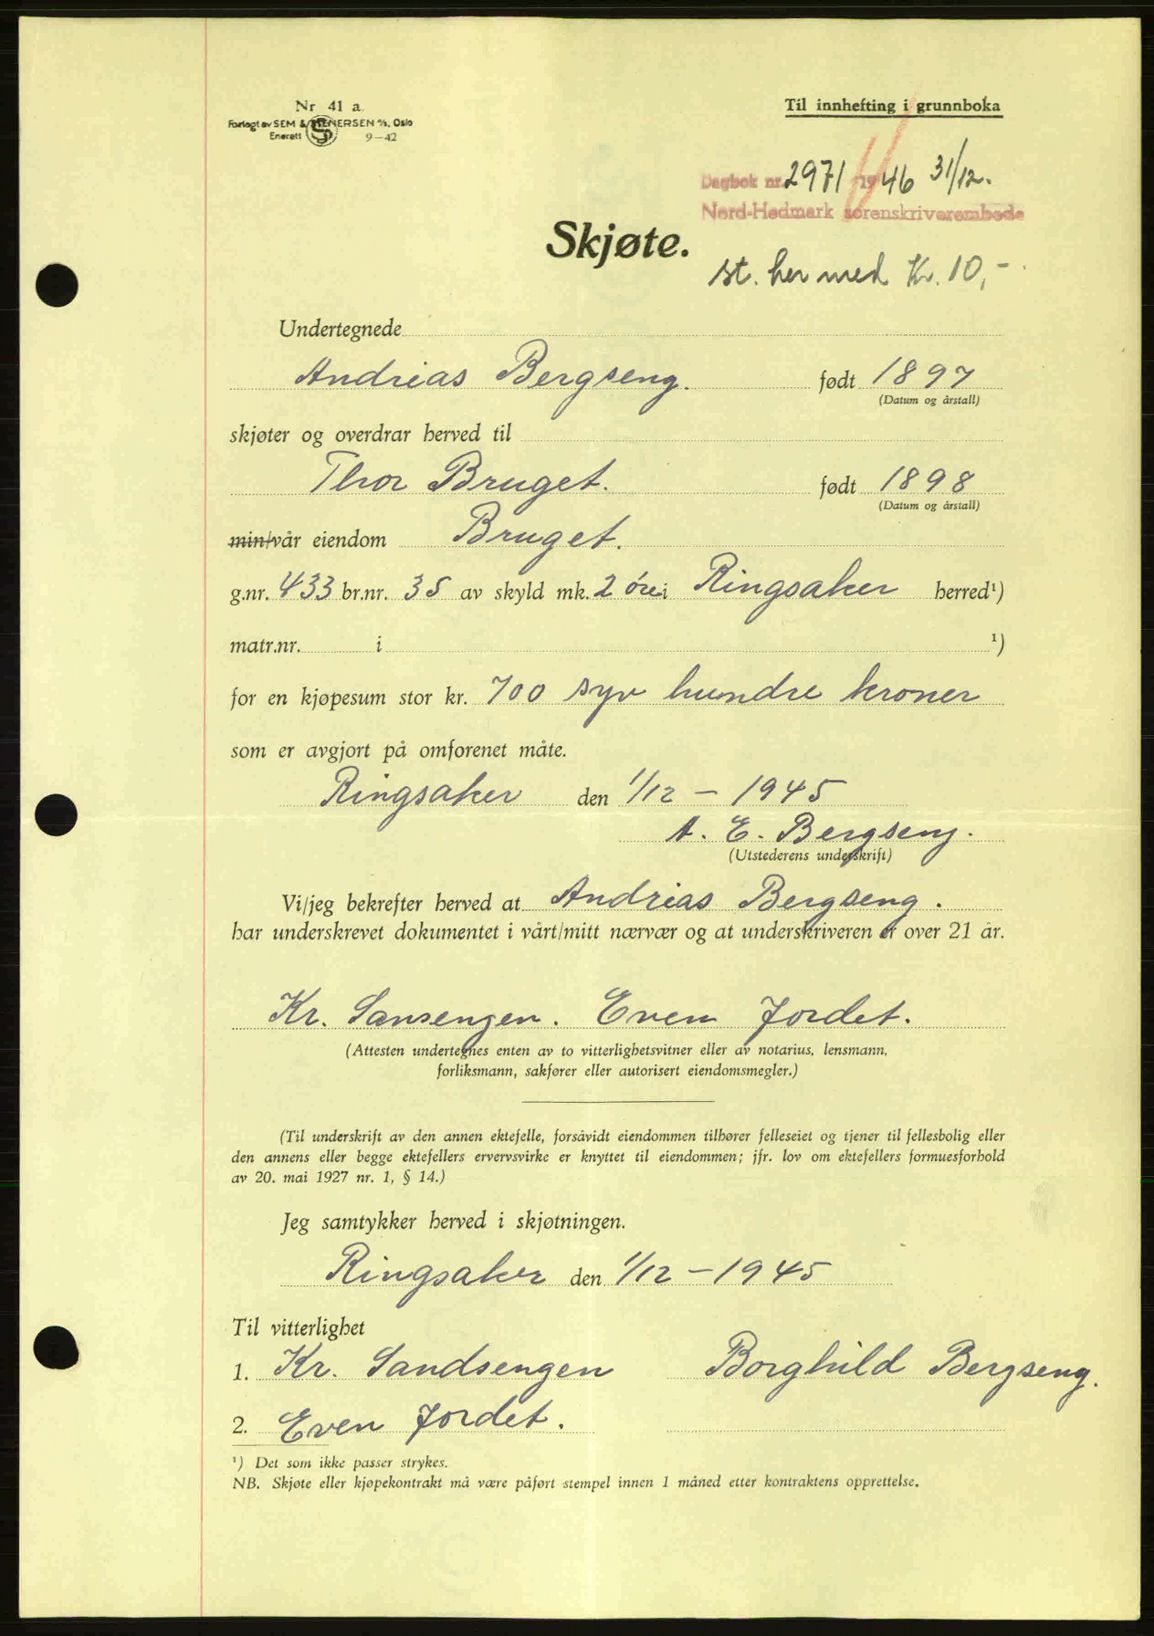 Nr 41 a.
Forlagt av SEM & STENERSEN A/S, Oslo
Enerett 9-42
Til innhefting i grunnboka
Dagbok nr. 2971 1946 31/12.
Nord-Hedmark sorenskriverembede
Skjøte.
st. her med Kr. 10,-
Undertegnede
Andreas Bergseng. født 1897
(Datum og årstall)
skjøter og overdrar herved til
Thor Bruget. født 1898
(Datum og årstall)
min/vår eiendom Bruget.
g.nr. 433 br.nr. 35 av skyld mk. 2 öre i Ringsaker herred¹)
matr.nr. i ¹)
for en kjøpesum stor kr. 700 syv hundre kroner
som er avgjort på omforenet måte.
Ringsaker den 1/12 - 1945
A. E. Bergseng.
(Utstederens underskrift)
Vi/jeg bekrefter herved at Andreas Bergseng.
har underskrevet dokumentet i vårt/mitt nærvær og at underskriveren er over 21 år.
Kr. Sansengen. Even Jordet.
(Attesten undertegnes enten av to vitterlighetsvitner eller av notarius, lensmann,
forliksmann, sakfører eller autorisert eiendomsmegler.)
(Til underskrift av den annen ektefelle, forsåvidt eiendommen tilhører felleseiet og tjener til fellesbolig eller
den annens eller begge ektefellers ervervsvirke er knyttet til eiendommen; jfr. lov om ektefellers formuesforhold
av 20. mai 1927 nr. 1, § 14.)
Jeg samtykker herved i skjøtningen.
Ringsaker den 1/12 - 1945
Til vitterlighet
1. Kr. Sandsengen Borghild Bergseng.
2. Even Jordet.
¹) Det som ikke passer strykes.
NB. Skjøte eller kjøpekontrakt må være påført stempel innen 1 måned etter kontraktens opprettelse.